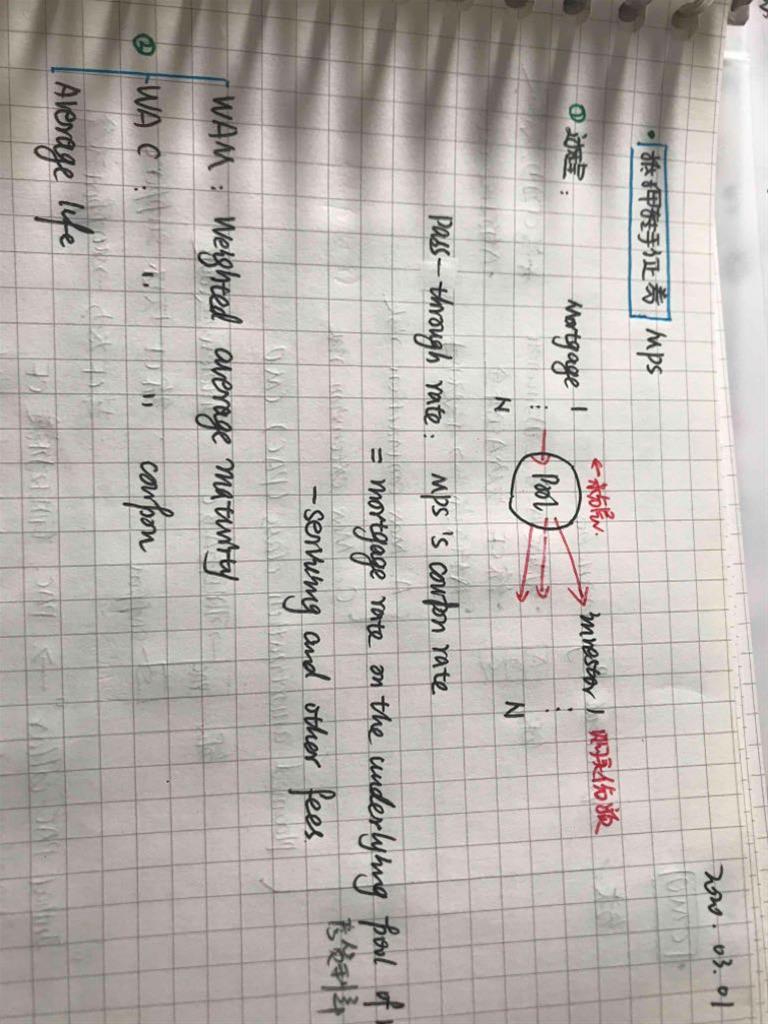 2020.03.01
·抵押过手证券 MPS
① 过程: Mortgage 1 → Pool → Investor 1 购买份额
⋮ ⋮
N N
pass-through rate: MPS's coupon rate
= mortgage rate on the underlying pool of
- servicing and other fees
② WAM: Weighted average maturity
WAC: 〃 〃 coupon
Average life